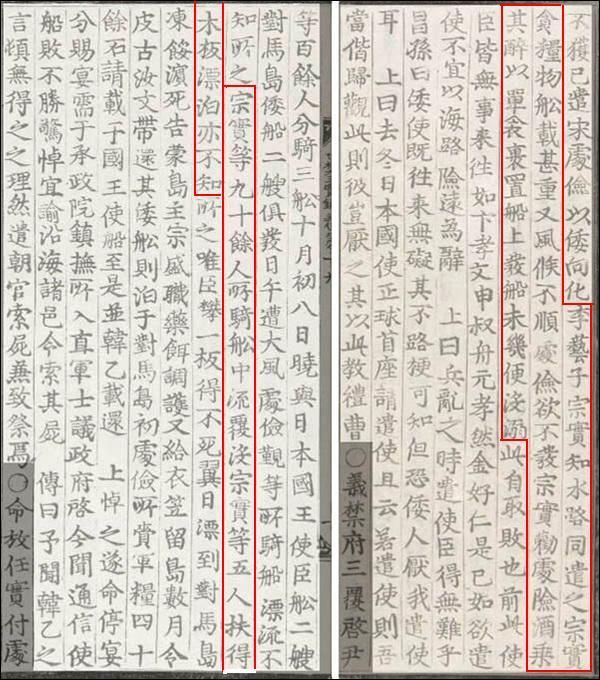 不獲已遣宋處儉以倭向化李藝子宗實知水路同遣之宗實
貪糧物船載甚重又風候不順處儉欲不發宗實勸處險酒乘
其醉以單衾裹置船上發船未幾便淹溺此自取敗也前此使
臣皆無事来往如卞孝文申叔舟元孝然金好仁是已如欲遣
使不宜以海路險遠為辭　上曰兵亂之時遣使臣得無難乎
昌孫曰倭使既往来無礙其不路梗可知但恐倭人厭我遣使
耳　上曰去冬日本國使正球首座請遣使且云若遣使則吾
當偕歸觀此則彼豈厭之其以此教禮曹○義禁府三覆啓尹
等百餘人分騎三船十月初八日曉與日本國王使臣船二艘
對馬島倭船二艘俱發日午遭大風處儉觀等所騎船漂流不
知所之宗實等九十餘人所騎船中流覆沒宗實等五人扶得
木板漂泊亦不知所之唯臣攀一板得不死翼日漂到對馬島
凍餒濱死告蒙島主宗盛職藥餌調護又給衣笠留島數月令
皮古汝文帶還其倭船則泊于對馬島初處儉所賫軍糧四十
餘石請載于國王使船至是並韓乙載還　上悼之遂命停宴
分賜宴需于承政院鎮撫所入直軍士議政府啓今聞通信使
船敗不勝驚悼宜諭沿海諸邑令索其屍　傳曰予聞韓乙之
言頓無得之之理然遣朝官索屍兼致祭焉○命放任實付處